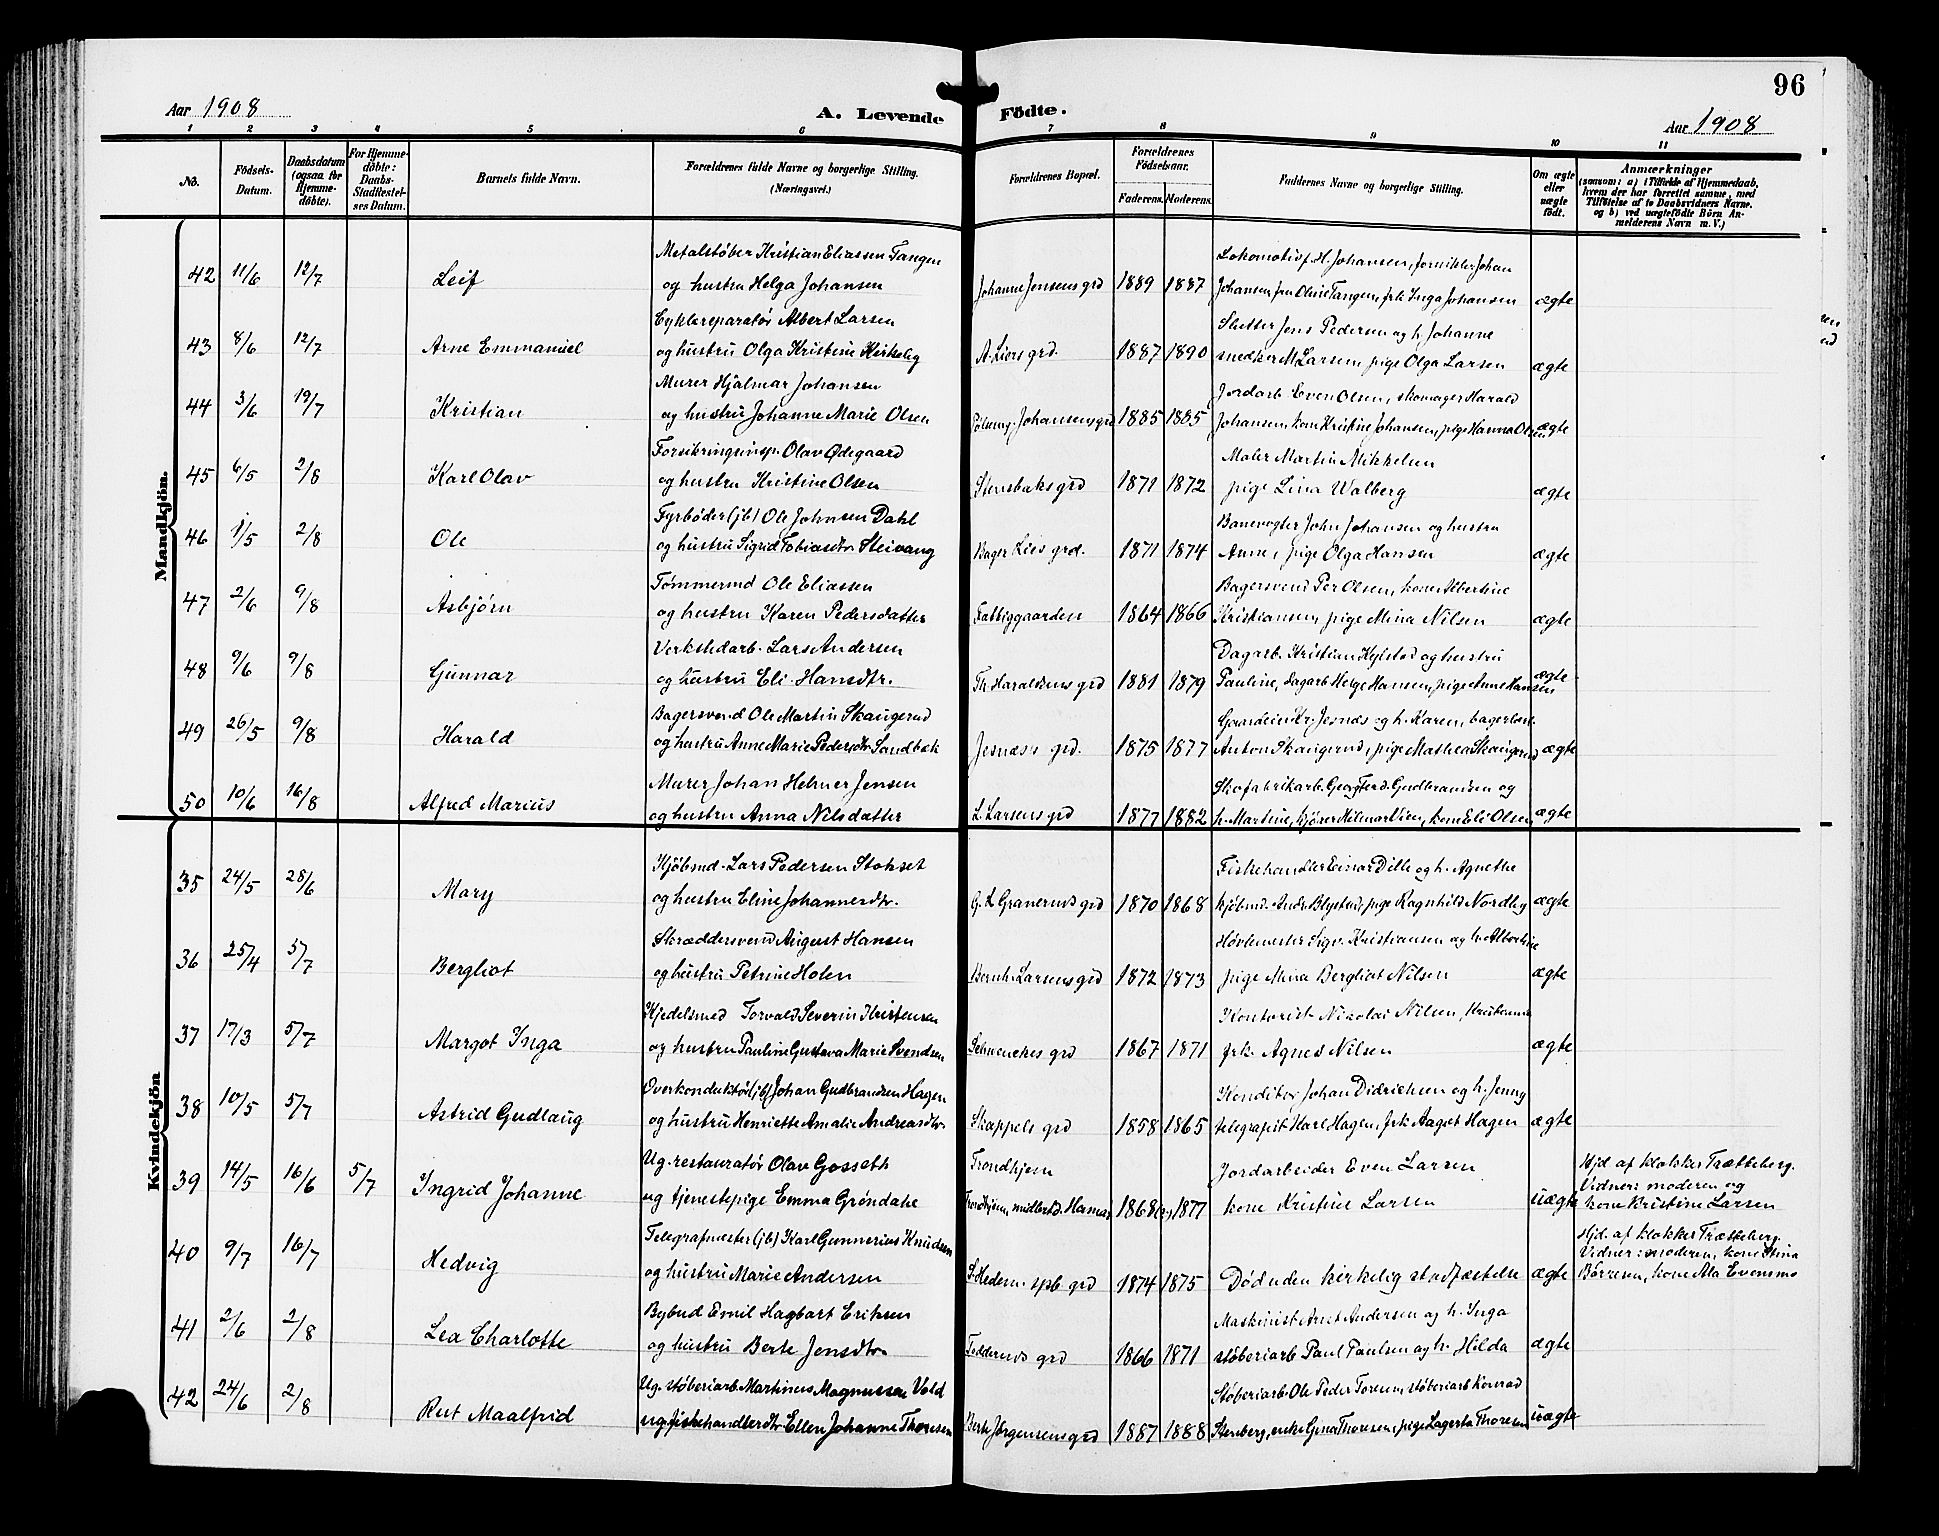 96
Aar 1908
A. Levende Födte.
Aar 1908
1 2 3 4 5 6 7 8 9 10 11
No.
Födsels-Datum.
Daabsdatum (ogsaa for Hjemmedöbte).
For Hjemmedöbte: Daabs-Stadfæstelses Datum.
Barnets fulde Navn.
Forældrenes fulde Navne og borgerlige Stilling. (Næringsvei.)
Forældrenes Bopæl.
Forældrenes Födselsaar.
Faderens. Moderens.
Faddernes Navne og borgerlige Stilling.
Om ægte eller uægte födt.
Anmærkninger
(saasom: a) i Tilfælde af Hjemmedaab, hvem der har forrettet samme, med Tilföielse af to Daabsvidners Navne. og b) ved uægtefödte Börn Anmelderens Navn m. V.)
Mandkjön.
Metalstøber Kristian Eliassen Tangen Lokomotivf. H. Johansen, Johan
42 11/6 12/7 Leif og hustru Helga Johansen Johanne Jensens grd 1889 1887 Johansen, fru Oline Tangen, frk Inga Johansen ægte
Cyklereparatør Albert Larsen Slutter Jens Pedersen og h. Johanne
43 8/6 12/7 Arne Emmanuel og hustru Olga Kristine Kirkelig A. Liers grd. 1887 1890 snedker M. Larsen, pige Olga Larsen ægte
Murer Hjalmar Johansen Jordarb Even Olsen, skomager Harald
44 3/6 19/7 Kristian og hustru Johanne Marie Olsen Pølsemg. Johansens grd 1885 1885 Johansen, kone Kristine Johansen, pige Hanna Olsen ægte
Forsikringsinsp. Olav Ødegaard Maler Martin Mikkelsen
45 6/5 2/8 Karl Olav og hustru Kristine Olsen Stensbaks grd 1871 1872 pige Lina Walberg ægte
Fyrbøder (jb) Ole Johnsen Dahl Banevogter John Johansen og hustru
46 1/5 2/8 Ole og hustru Sigrid Tobiasdtr. Steivang Bager Liers grd. 1871 1874 Anne, pige Olga Hansen ægte
Tømmermd Ole Eliassen Bagersvend Per Olsen, kone Albertine
47 2/6 9/8 Asbjörn og hustru Karen Pedersdatter Fattiggaarden 1864 1866 Kristiansen, pige Mina Nilsen ægte
Verkstedarb. Lars Andersen Dagarb. Kristian og hustru
48 9/6 9/8 Gunnar og hustru Eli Hansdtr. Th. Haraldsens grd 1881 1879 Pauline, dagarb Helge Hansen, pige Anne Hansen ægte
Bagersvend Ole Martin Skaugerud Gaardeier Kr. Jesnæs og h. Karen, bager
49 26/5 9/8 Harald og hustru Anne Marie Pedersdtr Sandbæk Jesnæs's grd. 1875 1877 Anton Skaugerud, pige Mathea Skaugerud ægte
Murer Johan Helmer Jensen Skofabrikarb. Georg Ferd. Gudbrandsen og
50 10/6 16/8 Alfred Marius og hustru Anna Nilsdatter L. Larsens grd 1877 1882 h. Martine, kjører Hilmar Vien, kone Eli Olsen ægte
Kvindekjön
Kjöbmd. Lars Pedersen Stokset Fiskehandler Einar Dille og h. Agnethe
35 24/5 28/6 Mary og hustru Eline Johannesdtr. G. L. Graneruds grd 1870 1868 kjöbmd. Andr. Blystad, pige Ragnhild Nordby ægte
Skræddersvend August Hansen Høvlemester Sigv. Kristiansen og h. Albertine
36 25/4 5/7 Bergliot og hustru Petrine Holen Bernh. Larsens grd 1872 1873 pige Mina Bergliot Nilsen ægte
Kjedelsmed Torvald Severin Kristensen Kontorist Nikolai Nilsen, Kristiania
37 17/3 5/7 Margot Inga og hustru Pauline Gustava Marie Svendsen Schwenckes grd 1867 1871 frk. Agnes Nilsen ægte
Overkonduktør (jb) Johan Gudbrandsen Hagen Konditor Johan Didrichsen og h. Jenny
38 10/5 5/7 Astrid Gudlaug og hustru Henriette Amalie Andreasdtr. Skappels grd 1858 1865 telegrapist Karl Hagen, frk Aagot Hagen ægte
Ug. restauratør Olav Gosseth Trondhjem Jordarbeider Even Larsen Hjd. af klokker Trætteberg.
39 14/5 16/6 5/7 Ingrid Johanne ug tjenestepige Emma Gröndahl Trondhjem, midlertd. Hamar 1868(?) 1877 kone Kristine Larsen uægte Vidner: moderen og kone Kristine Larsen
Telegrafmester (jb) Karl Gunnerius Knudsen Hjd. af klokker Trætteberg.
40 9/7 16/7 Hedvig og hustru Marie Andersen S. Hedem. spb grd 1874 1875 Död uden kirkelig stadfæstelse ægte Vidner: moderen, kone Stina Börresen, kone Ala Evensmo
Bybud Emil Hagbart Eriksen Maskinist Arnt Andersen og h. Inga
41 2/6 2/8 Lea Charlotte og hustru Berte Jensdtr. Fedderuds grd 1866 1871 støberiarb Paul Paulsen og h. Hilda ægte
Ug. støberiarb. Martinus Magnussen Vold Støberiarb. Ole Peder Foreum, støberiarb Konrad
42 24/6 2/8 Rut Maalfrid ug. fiskehandlerdtr. Ellen Johanne Thoresen Berte Jørgensens grd 1887 1888 Stenberg, enke Gina Thoresen, pige Lagerta Thoresen uægte